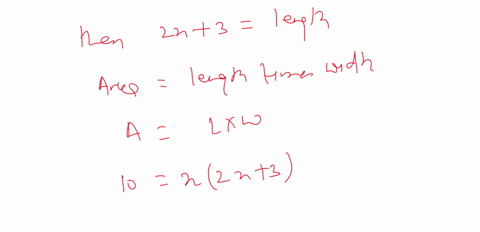 then 2x+3 = length
Area = length times width
A = L×W
10 = x(2x+3)